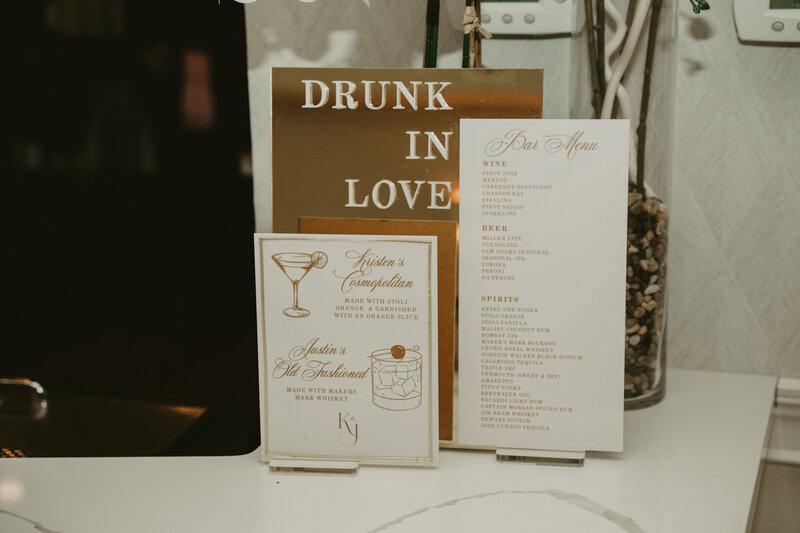 DRUNK
IN
LOVE
Kristen's
Cosmopolitan
MADE WITH STOLI
ORANGE & GARNISHED
WITH AN ORANGE SLICE
Justin's
Old Fashioned
MADE WITH MAKERS
MARK WHISKEY
K & J
Bar Menu
WINE
PINOT NOIR
MERLOT
CABERNET SAUVIGNON
CHARDONNAY
RIESLING
PINOT GRIGIO
SPARKLING
BEER
MILLER LITE
YUENGLING
SAM ADAMS SEASONAL
SEASONAL IPA
CORONA
PERONI
NA PERONI
SPIRITS
KETEL ONE VODKA
STOLI ORANGE
STOLI VANILLA
MALIBU COCONUT RUM
BOMBAY GIN
MAKER'S MARK BOURBON
CROWN ROYAL WHISKEY
JOHNNIE WALKER BLACK SCOTCH
CASAMIGOS TEQUILA
TRIPLE SEC
VERMOUTH (SWEET & DRY)
AMARETTO
TITO'S VODKA
BEEFEATER GIN
BACARDI LIGHT RUM
CAPTAIN MORGAN SPICED RUM
JIM BEAM WHISKEY
DEWARS SCOTCH
JOSE CUERVO TEQUILA